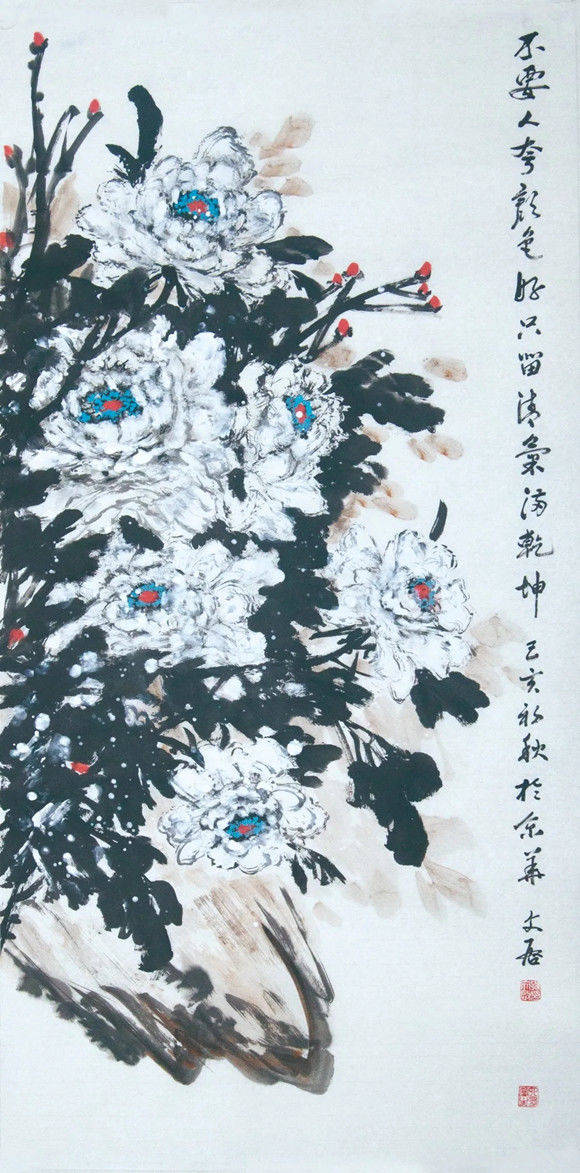 不要人夸颜色好只留清气满乾坤 己亥初秋於京华 文居